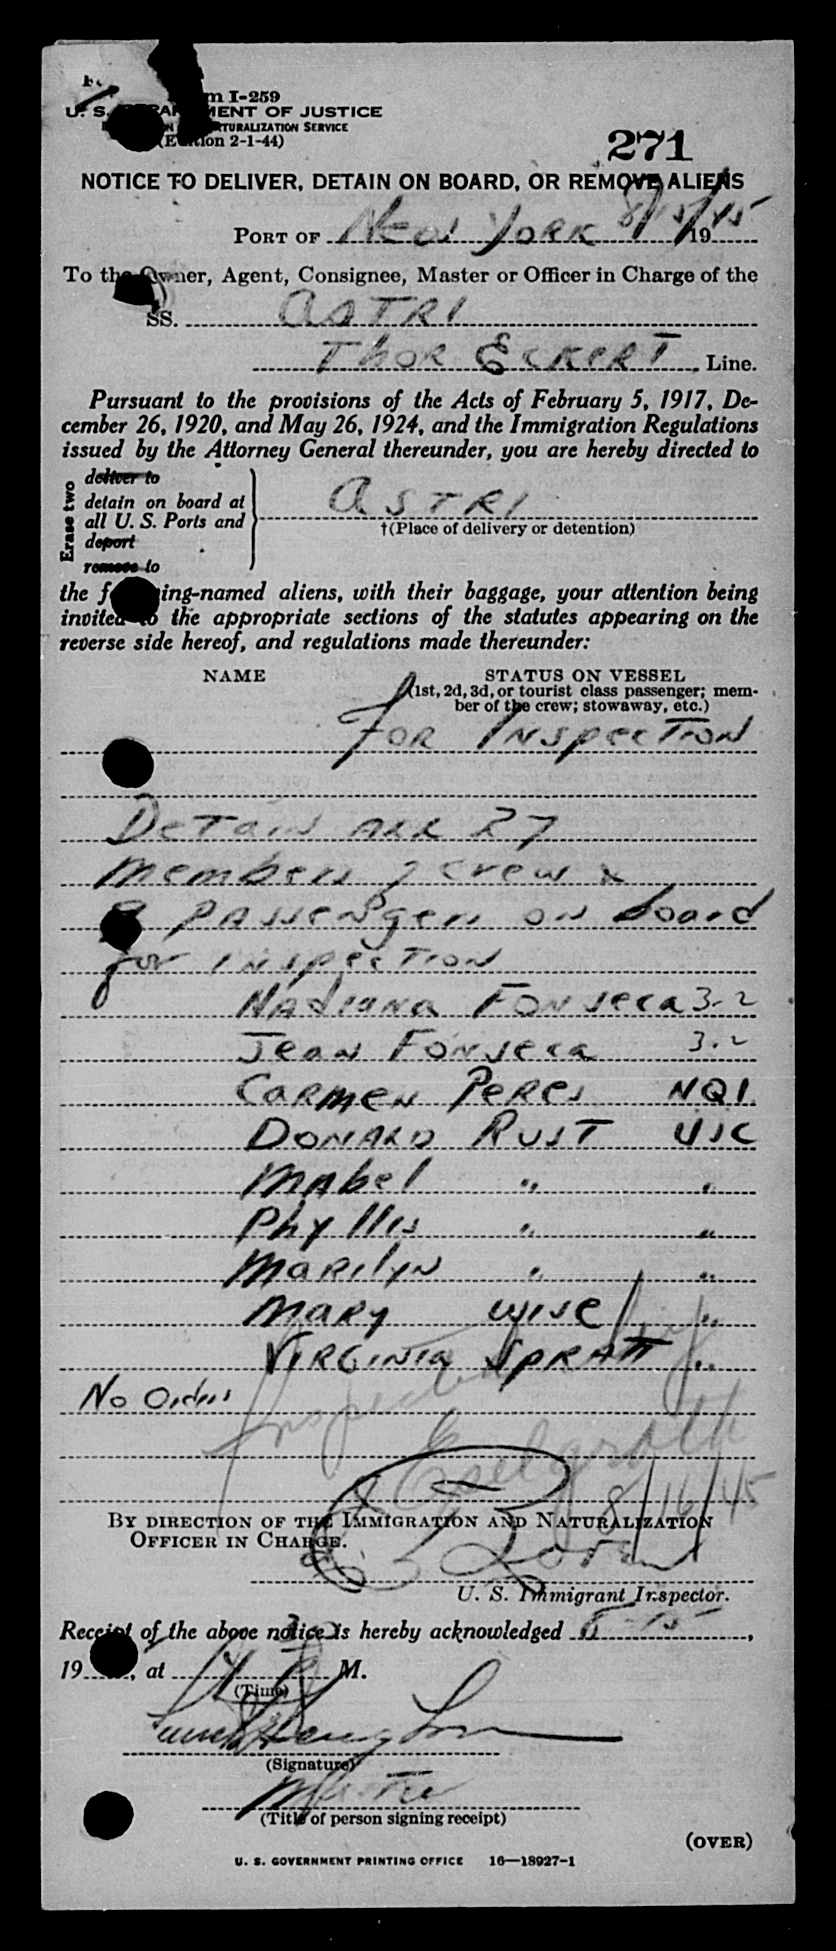 Form I-259
U. S. DEPARTMENT OF JUSTICE
NATURALIZATION SERVICE
(Edition 2-1-44)
271
NOTICE TO DELIVER, DETAIN ON BOARD, OR REMOVE ALIENS
PORT OF New York 8/15/1945
To the Owner, Agent, Consignee, Master or Officer in Charge of the
SS. ASTRI
Thor Eckert Line.
Pursuant to the provisions of the Acts of February 5, 1917, De-
cember 26, 1920, and May 26, 1924, and the Immigration Regulations
issued by the Attorney General thereunder, you are hereby directed to
Erase two
deliver to
detain on board at
all U. S. Ports and
deport
remove to
ASTRI
†(Place of delivery or detention)
the following-named aliens, with their baggage, your attention being
invited to the appropriate sections of the statutes appearing on the
reverse side hereof, and regulations made thereunder:
NAME STATUS ON VESSEL
(1st, 2d, 3d, or tourist class passenger; mem-
ber of the crew; stowaway, etc.)
For Inspection
Detain all 27
members of crew &
9 Passengers on board
for inspection
Fonseca 3.2
Jean Fonseca 3.2
Carmen Peres NQI
Donald Rust USC
Mabel " "
Phyllis " "
Marilyn " "
Mary Wise "
Virginia Spratt "
No Orders
Inspected
8/16/45
BY DIRECTION OF THE IMMIGRATION AND NATURALIZATION
OFFICER IN CHARGE.
U. S. Immigrant Inspector.
Receipt of the above notice is hereby acknowledged 8-15,
19, at 4 30 P M.
(Time)
(Signature)
Master
(Title of person signing receipt)
(OVER)
U. S. GOVERNMENT PRINTING OFFICE 16—18927-1